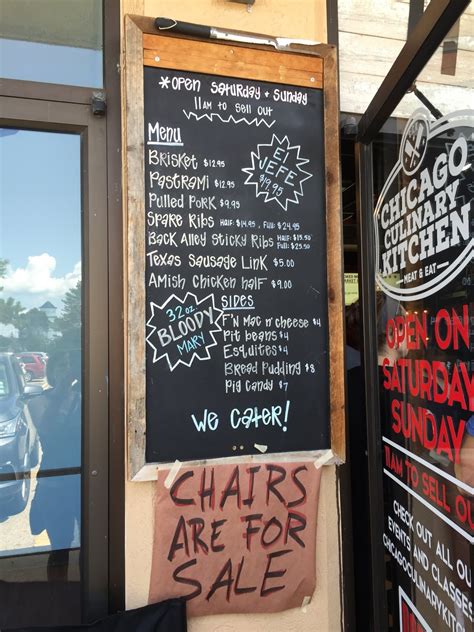 *OPEN SATURDAY + SUNDAY
11AM TO SELL OUT
Menu
BRISKET $12.95
PASTRAMI $12.95
PULLED PORK $9.95
SPARE RIBS HALF: $14.95, FULL: $24.95
BACK ALLEY STICKY RIBS HALF: $15.50
FULL: $25.50
TEXAS SAUSAGE LINK $5.00
AMISH CHICKEN HALF $9.00
El
JEFE
$19.95
32oz
BLOODY
MARY
SIDES
F'N MAC N' CHEESE $4
PIT BEANS $4
ESQUITES $4
BREAD PUDDING $8
PIG CANDY $7
WE CATER!
CHAIRS
ARE FOR
SALE
CHICAGO
CULINARY
KITCHEN
MEAT & EAT
OPEN ON
SATURDAY
SUNDAY
11AM TO SELL OU
CHECK OUT ALL OU
EVENTS AND CLASSE
CHICAGOCULINARYKITCH